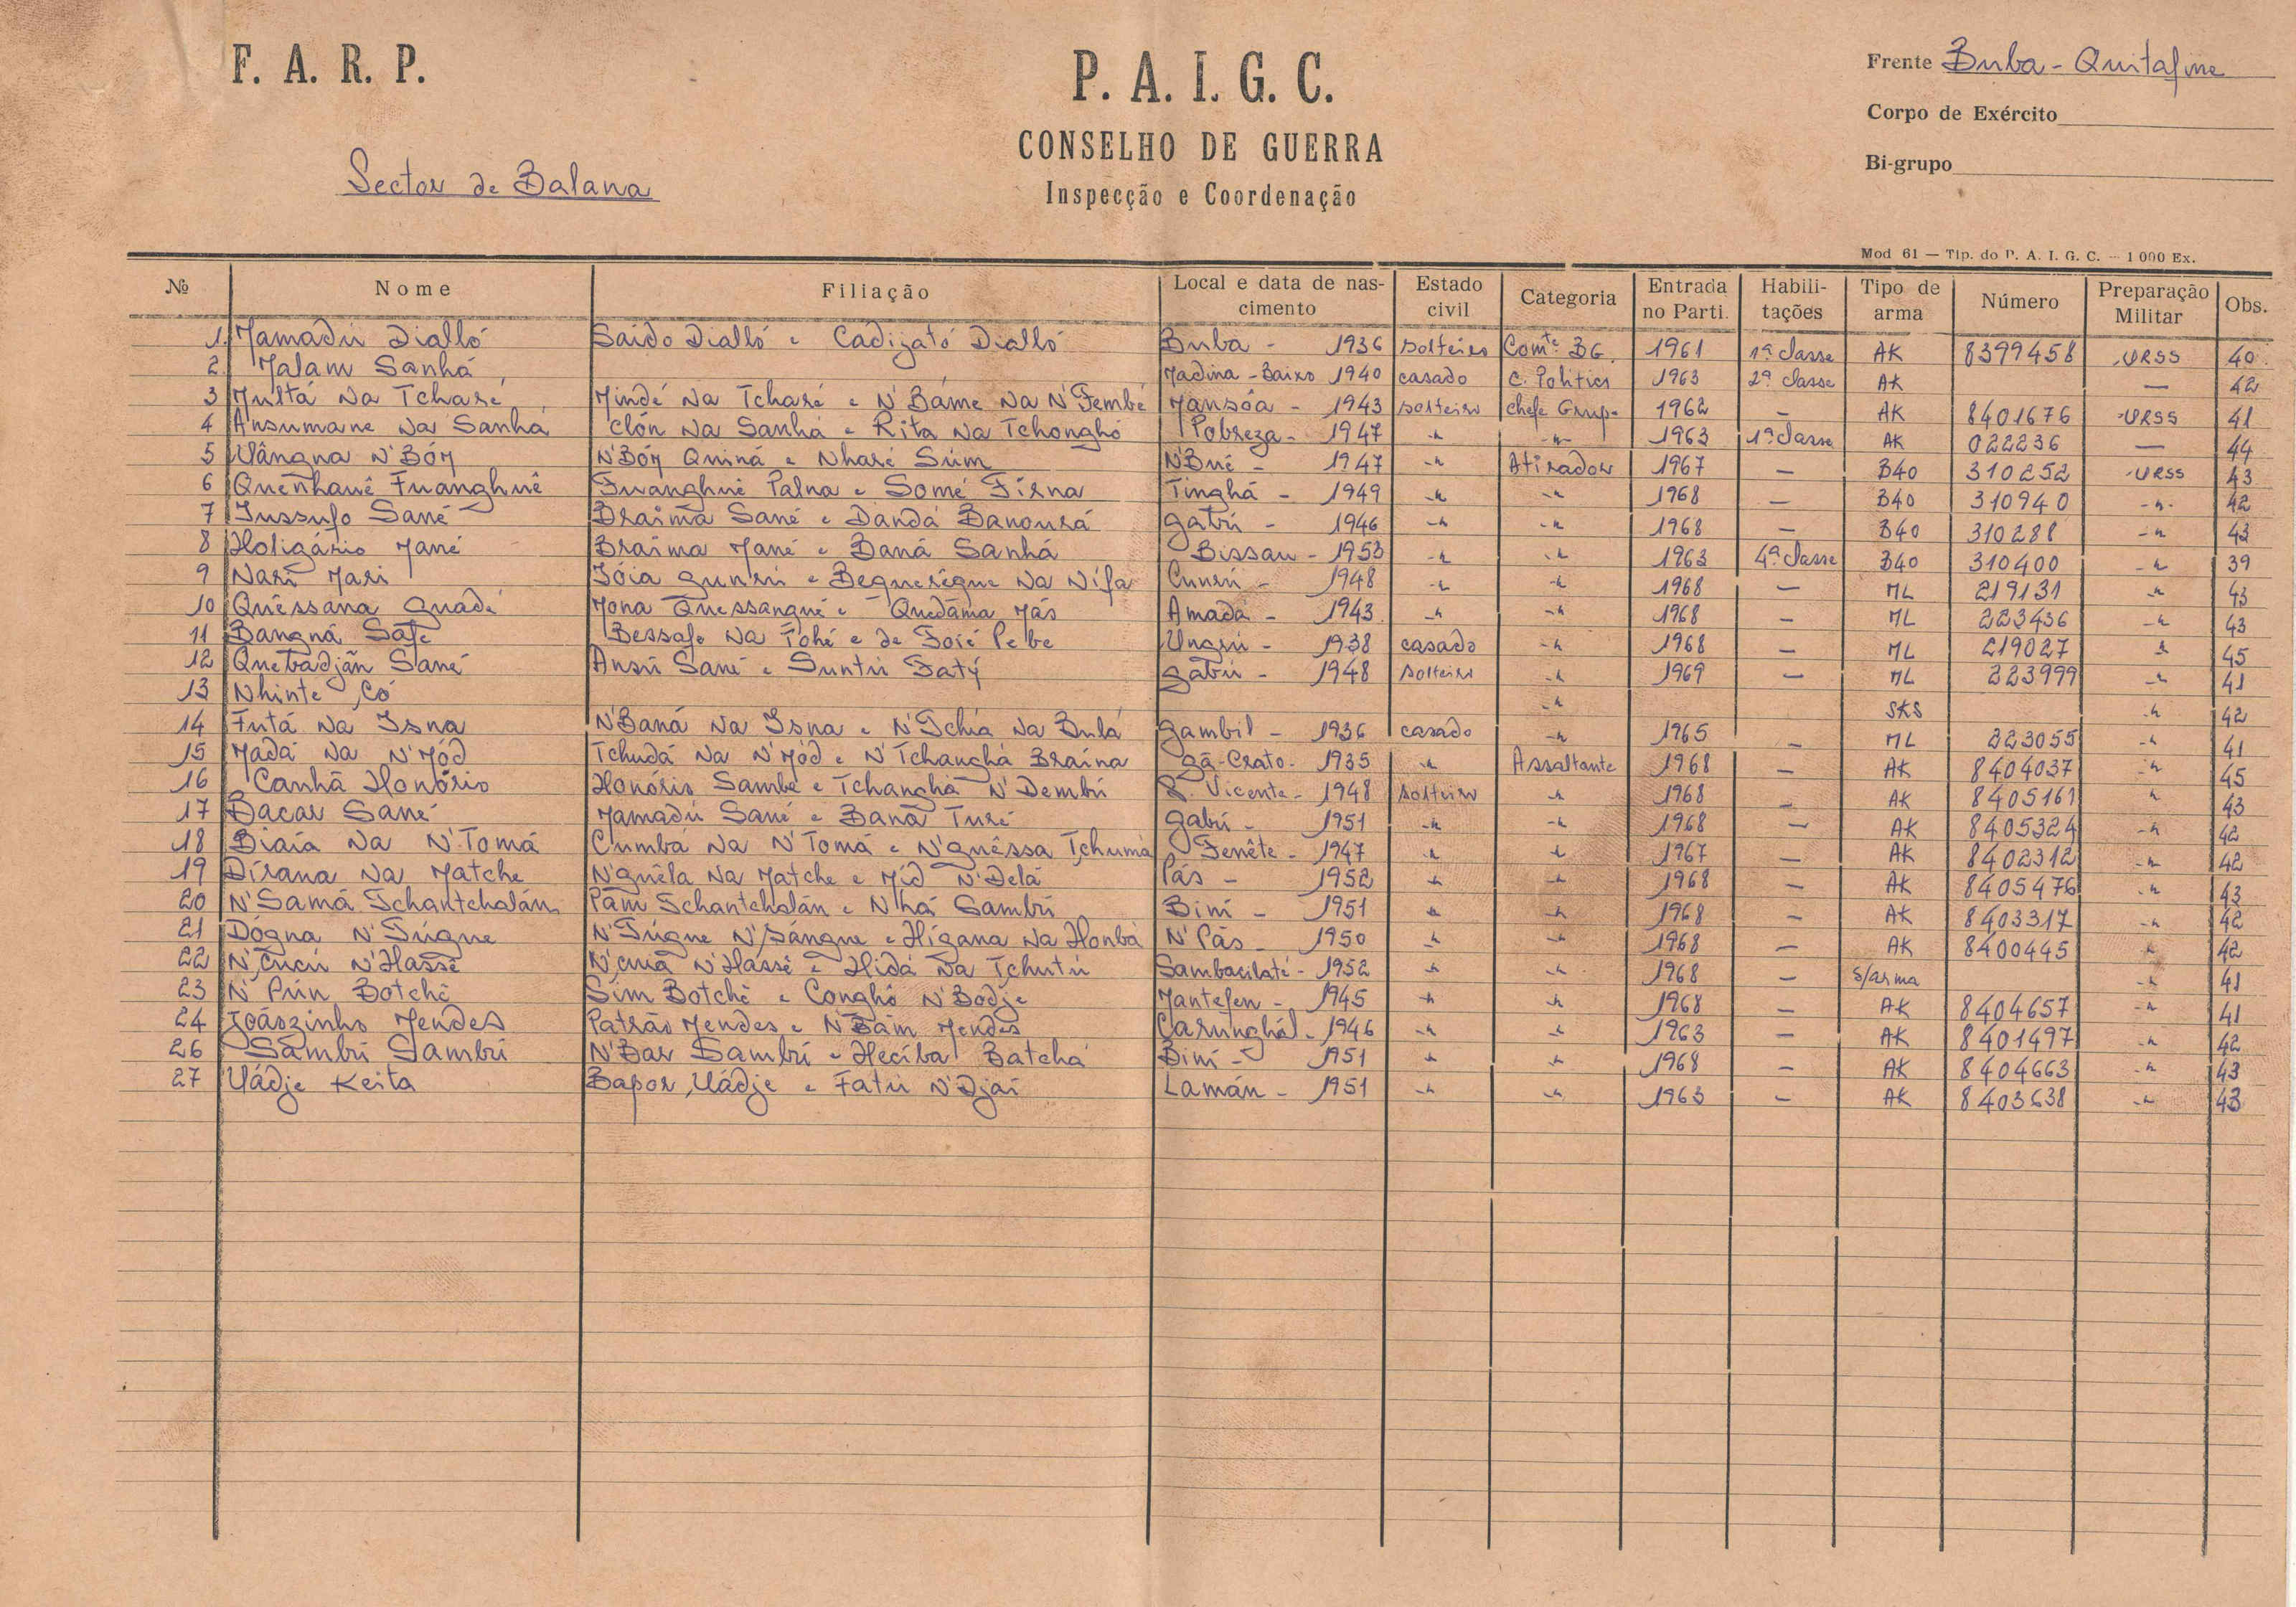 F. A. R. P.
P. A. I. G. C.
CONSELHO DE GUERRA
Inspecção e Coordenação
Sector de Balana
Frente Buba - Quitafine
Corpo de Exército
Bi-grupo
Mod 61 — Tip. do P. A. I. G. C. — 1 000 Ex.
Nº Nome Filiação Local e data de nascimento Estado civil Categoria Entrada no Parti. Habilitações Tipo de arma Número Preparação Militar Obs.
1 Mamadú Dialló Saido Dialló e Cadijató Dialló Buba - 1936 solteiro Comte BG. 1961 1ª classe AK 8399458 URSS 40
2 Malam Sanhá Madina - Baixo 1940 casado C. Politici 1963 2ª classe AK — 42
3 Multá Na Tcharé Mindé Na Tcharé e N'Báme Na N'Fembé Mansôa - 1943 solteiro chefe Grup- 1962 - AK 8401676 URSS 41
4 Ansumane Na Sanhá Clón Na Sanhá e Rita Na Tchonghó Pobreza - 1947 -"- -"- 1963 1ª classe AK 022236 — 44
5 Uângna N'Bóm N'Bóm Quiná e Nharé Súm N'Bué - 1947 -"- Atirador 1967 - B40 310252 URSS 43
6 Quenhauê Fuanghuê Fuanghuê Palna e Somé Fírna Tinghá - 1949 -"- -"- 1968 - B40 310940 -"- 42
7 Iussufo Sané Braima Sané e Dandá Banourá Gabú - 1946 -"- -"- 1968 - B40 310288 -"- 43
8 Holigário Mané Braima Mané e Baná Sanhá Bissau - 1953 -"- -"- 1963 4ª classe B40 310400 -"- 39
9 Nari Mari Jóia Gunrú e Bequerégue Na Nifa Cunrú - 1948 -"- -"- 1968 - ML 219131 -"- 43
10 Quêssana Guadé Mona Quessangué e Quedâma Más Amadá - 1943 -"- -"- 1968 - ML 223436 -"- 43
11 Bangná Safe Bessafo Na Tohé e de Foié Pebe Ungrú - 1938 casado -"- 1968 - ML 219027 -"- 45
12 Quebadjãn Sané Ansú Sané e Suntú Faty Gabú - 1948 solteiro -"- 1969 - ML 223999 -"- 41
13 Nhinte Có -"- SKS -"- 42
14 Futá Na Isna N'Baná Na Isna e N'Tchia Na Bulá Gambil - 1936 casado -"- 1965 - ML 223055 -"- 41
15 Madá Na N'Mód Tchudá Na N'Mód e N'Tchanghá Braina Gã-Crato - 1935 -"- Assaltante 1968 - AK 8404037 -"- 45
16 Canhã Honório Honório Sambé e Tchanghá N'Dembú S. Vicente - 1948 solteiro -"- 1968 - AK 8405161 " 43
17 Bacar Sané Mamadú Sané e Baná Turé Gabú - 1951 -"- -"- 1968 - AK 8405324 -"- 42
18 Biaiá Na N'Tomá Cumbá Na N'Tomá e N'Guêssa Tchumá Fenête - 1947 -"- -"- 1967 - AK 8402312 -"- 42
19 Dírana Na Matche N'Guêla Na Matche e Mid N'Delá Pás - 1952 -"- -"- 1968 - AK 8405476 -"- 43
20 N'Samá Tchantchalán Pam Tchantchalán e Nhá Sambú Biní - 1951 -"- -"- 1968 - AK 8403317 -"- 42
21 Dógna N'Túgne N'Túgne N'Sángue e Hígana Na Honbá N'Pás - 1950 -"- -"- 1968 - AK 8400445 " 42
22 N'Cucú N'Hassê N'Cuiá N'Hassê e Hidá Na Tchutú Sambacilaté - 1952 -"- -"- 1968 - s/arma -"- 41
23 N'Pún Botchê Sim Botchê e Conghó N'Bodje Mantefen - 1945 -"- -"- 1968 - AK 8404657 -"- 41
24 Joãozinho Mendes Patrão Mendes e N'Bám Mendes Carunghál - 1946 -"- -"- 1963 - AK 8401497 -"- 42
26 Sambú Sambú N'Bar Sambú e Hecíba Batchá Biní - 1951 -"- -"- 1968 - AK 8404663 -"- 43
27 Uádje Keita Bapor Uádje e Fatú N'Djai Lamán - 1951 -"- -"- 1963 - AK 8403638 -"- 43